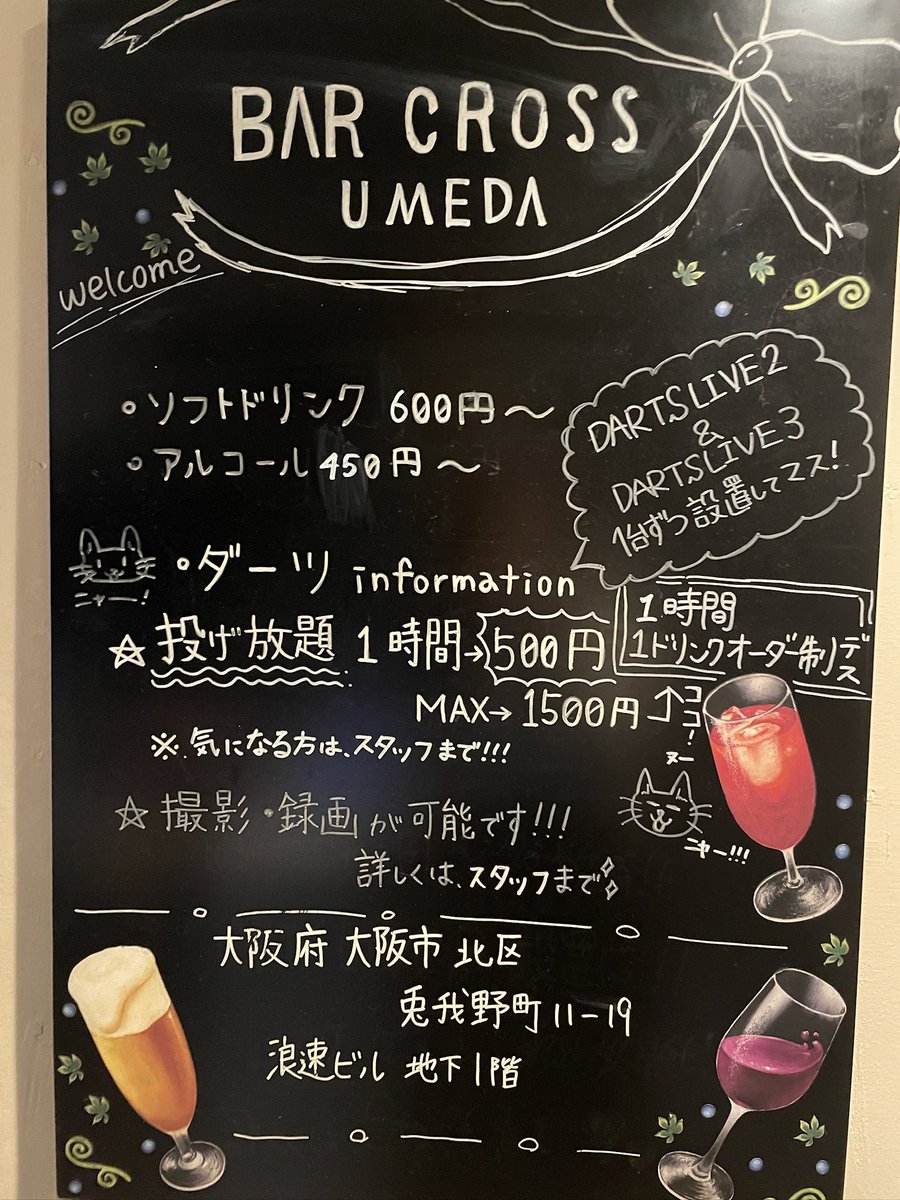 BAR CROSS
UMEDA
welcome
・ソフトドリンク 600円〜
・アルコール 450円〜
DARTSLIVE2
&
DARTSLIVE3
1台ずつ設置してマス!
ニャー!
・ダーツ information
☆投げ放題 1時間→500円
1時間
1ドリンクオーダー制デス
MAX→1500円
ココ!
※気になる方は、スタッフまで!!!
ヌー
ニャー!!!
☆撮影・録画が可能です!!!
詳しくは、スタッフまで
大阪府 大阪市 北区
兎我野町11-19
浪速ビル 地下1階